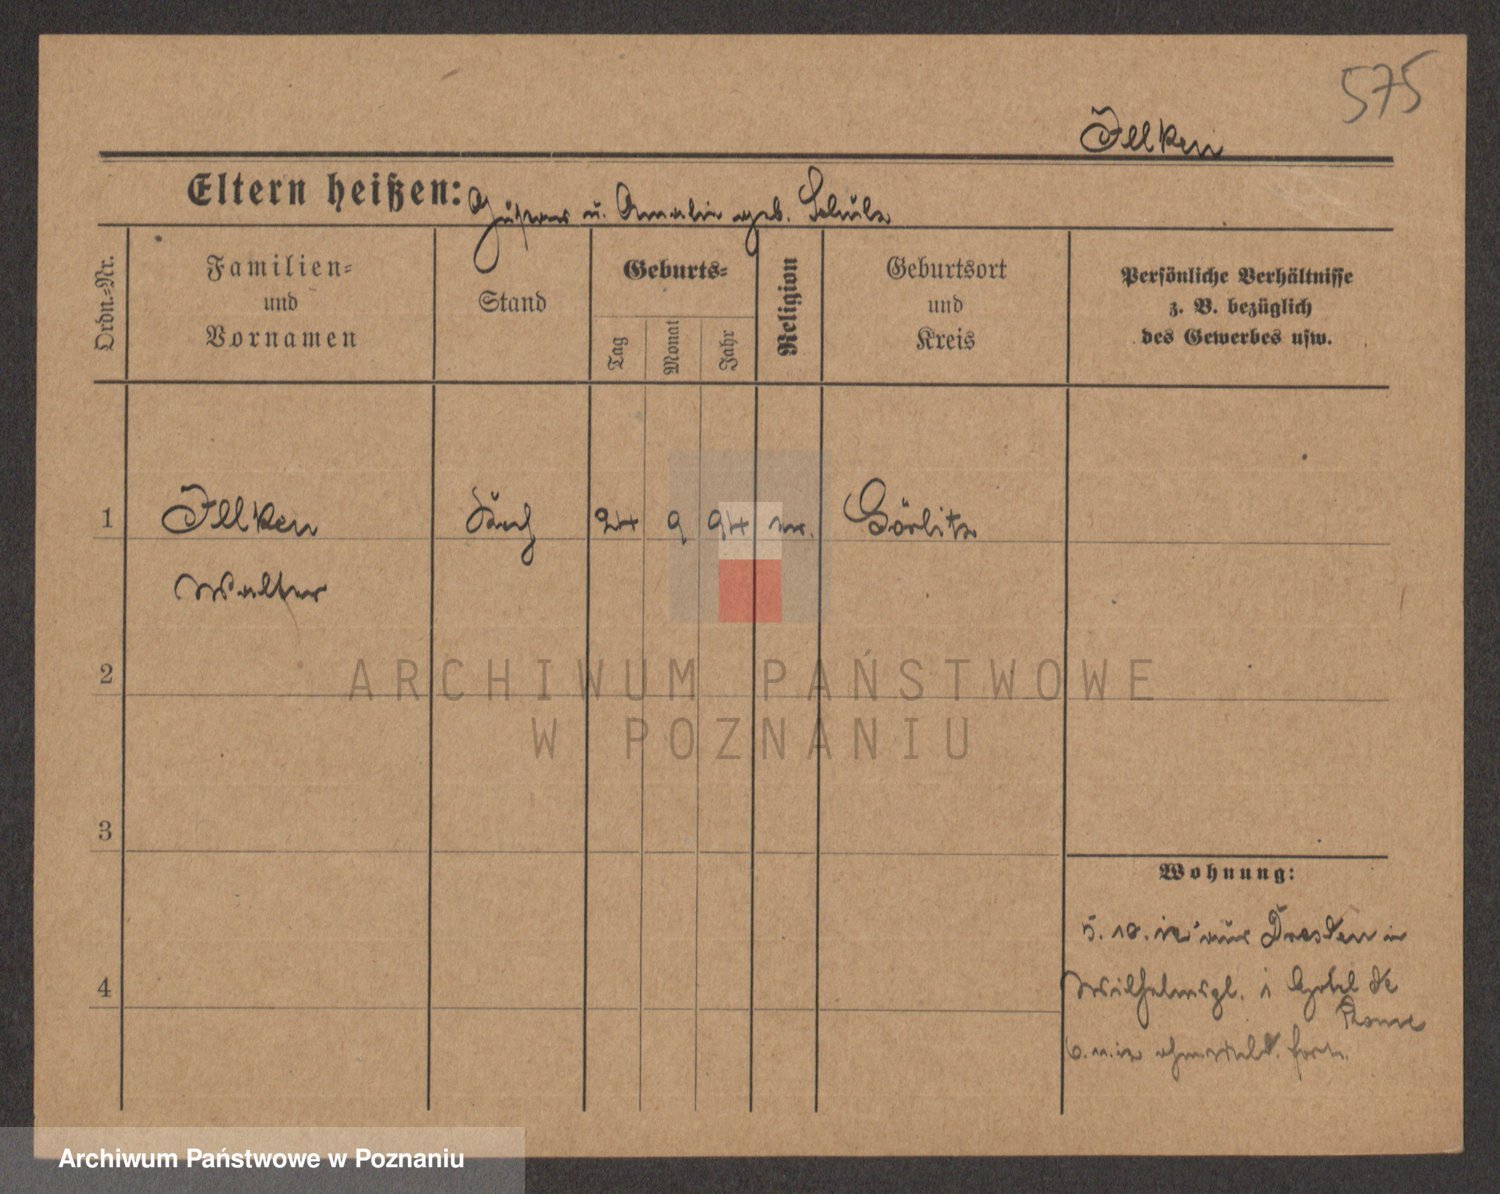 575
Illken
Eltern heißen: Gustav u. Amalie geb. Schulz
Ordn.=Nr.
Familien=
und
Vornamen
Stand
Geburts=
Tag
Monat
Jahr
Religion
Geburtsort
und
Kreis
Persönliche Verhältnisse
z. B. bezüglich
des Gewerbes usw.
1
Illken
24
9
94
Görlitz
Walter
2
ARCHIWUM PAŃSTWOWE
W POZNANIU
3
4
Wohnung:
5. 10. 12 aus Dresden in
Wilhelmspl. 1 Hotel de
Rome
6. 11. 12
Archiwum Państwowe w Poznaniu